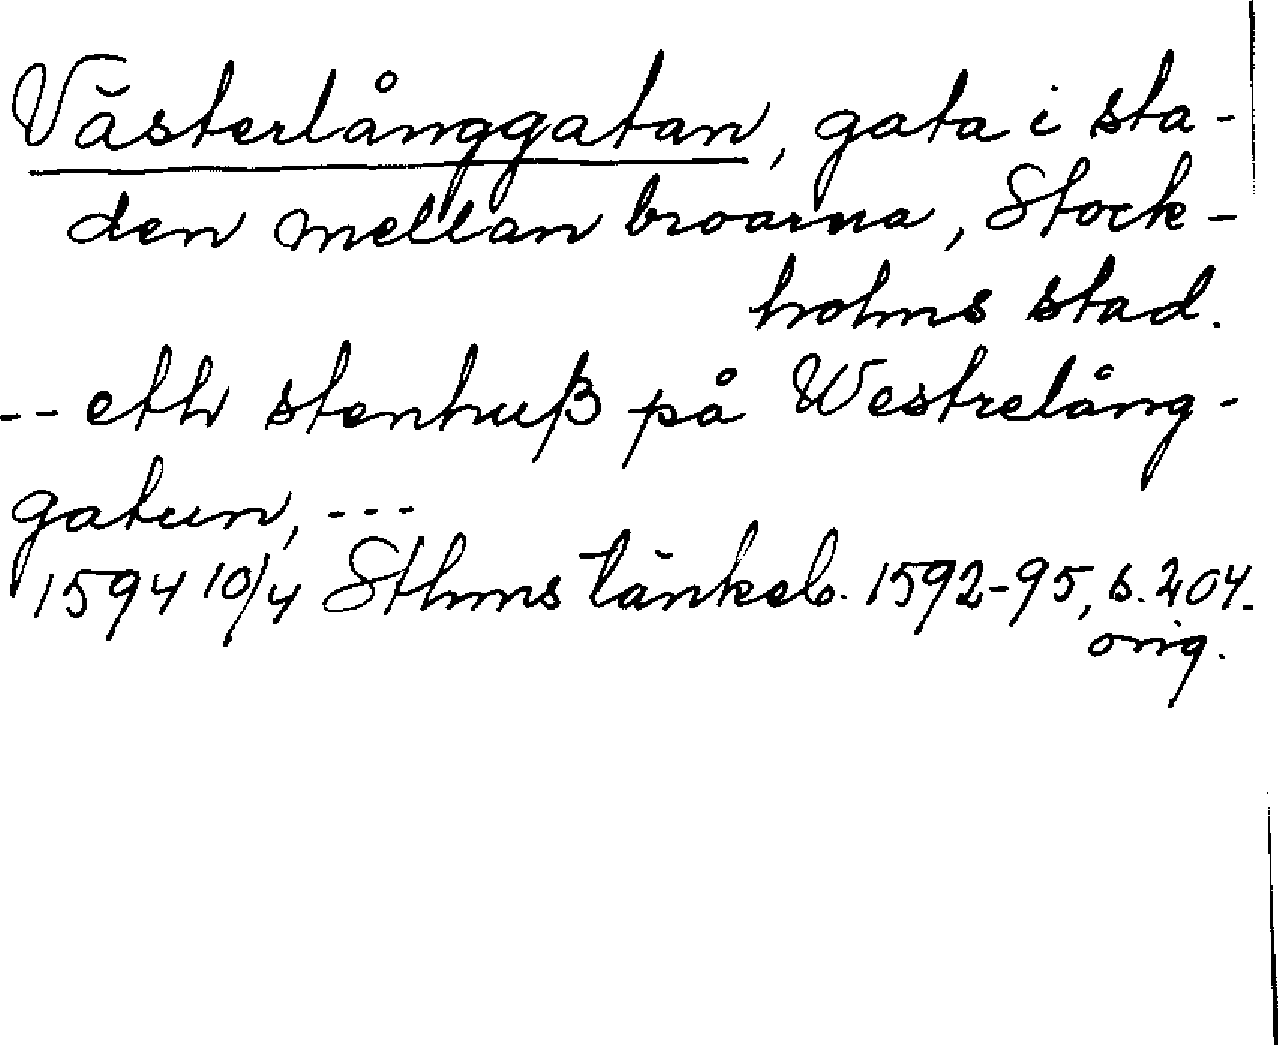 Västerlånggatan, gata i sta-
den mellan broarna, Stock-
holms stad.
-- eth stenhuß på Westrelång-
gatun, ---
1594 10/4 Sthms tänkeb. 1592-95, s. 204.
orig.